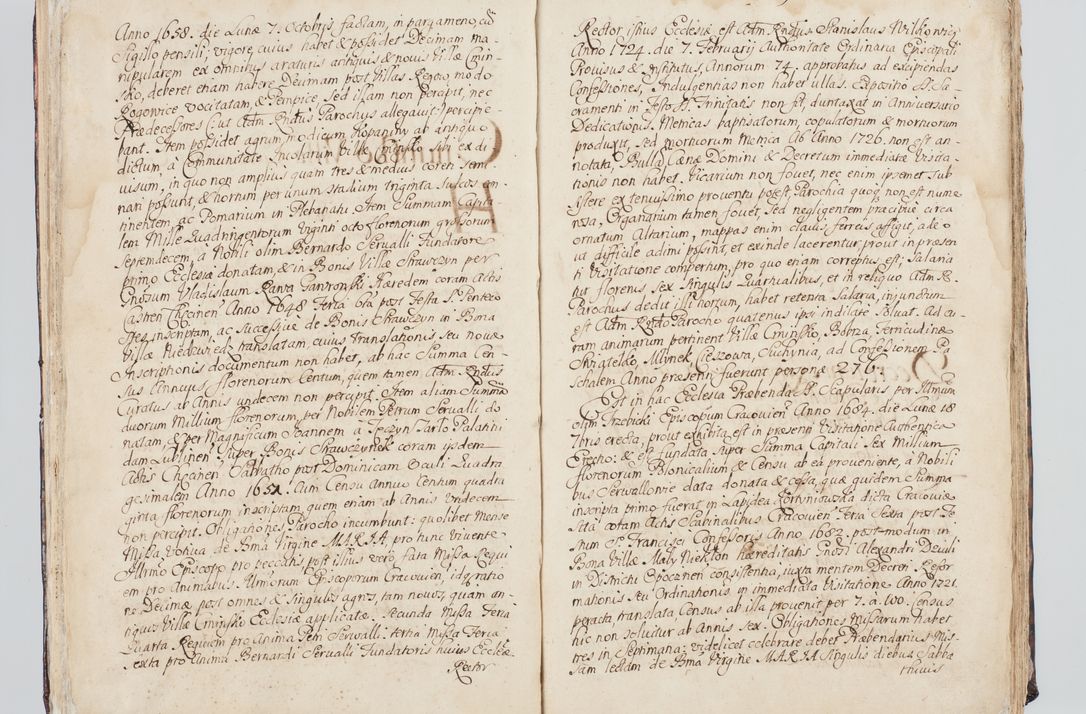 Anno 1658. die Lunæ 7. Octobris factam, in pargameno, cũ
Sigilo pensili, vigore, cuius habet & possidet Decimam ma-
nipularem ex omnibus araturis antiquis & novis Villæ Cmin-
sko, deberet etiam habere Decimam post Villas Regow modo
Rogowice vocitatam, & Sempice, sed illam non percipit, nec
Prædecessores (:ut Adm. Rndus Parochus allegavit:) percipie-
bant. Item possidet agrum modicum Kopaniny ab antiquo
dictum, à Communitate Incolarum Villæ Cminsko sibi ex di-
visum, in quo non amplius quam tres & medius coreti semi-
nari possunt, & hortum per unum stadium triginta sulcos con-
tinentem, ac Pomarium in Plebanali. Item Summam Capita
lem Mille Quadringentorum viginti octo florenorum grossorum
septemdecem, à Nobili olim Bernardo Servalli Fundatore
primo Ecclesiæ donatam, & in Bonis Villæ Strawczyn per
Gnosum Vladislaum Rawa Gawronski Hæredem coram Actis
Castren Chęcinen Anno 1648 Feria 6ta post Festa S. Penteco
stes inscriptam, ac successive de Bonis Strawczyn in Bona
Villæ Niedzwiedz translatam, cuius translationis seu novæ
Inscriptionis documentum non habet, ab hac Summa Cen-
sus Annuus florenorum Centum, quem tamen Adm. Rndus
Curatus ab Annis undecem non percipit. Item aliam Summã
duorum Millium florenorum, per Nobilem Petrum Servalli do
natam, & per Magnificum Joannem à Tęczyn Tarlo Palatini
dam Lublinen super Bonis Strawczynek coram ijsdem
Actis Chęcinen Sabbatho post Dominicam Oculi Quadra
gesimalem Anno 1651. Cum Censu Annuo Centum quadra
ginta florenorum inscriptam, quem etiam ab Annis Undecem
non percipit. Obligationes Parocho incumbunt: quolibet Mense
Missa Votiva de Bma Virgine MARIA pro tunc vivente
Illrimo Episcopo pro peccatis, post illius vero fata Missa Requi
em pro Animabus Almorum Episcoporum Cracovien, id gratio
ne Decimæ post omnes & singulos agros, tam novos, quam an-
tiquos Villæ Cminsko Ecclesiæ applicatæ. Secunda Missa Feria
Quarta Requiem pro Anima Petri Serwalli: tertia Missa Feria
sexta pro Anima Bernardi Servalli Fundatoris huius Ecclesiæ.
Rector
Rector istius Ecclesiæ est Adm. Rndus Stanislaus Wilkonski
Anno 1724. die 7. Februarij Authoritate Ordinaria Episcopali
Provisus & Institutus, Annorum 74. approbatus ad excipiendas
Confessiones, Indulgentias non habet ullas. Expositio SS. Sa-
cramenti in Festo SS. Trinitatis non fit, duntaxat in Anniversario
Dedicationis. Metricas baptisatorum, copulatorum & mortuorum
produxit, sed mortuorum Metrica ab Anno 1726. non est an-
notata, Bulla Cænæ Domini & Decretum immediatæ Visita-
tionis non habet. Vicarium non fovet, nec enim ipsemet sub
sistere ex tenuissimo proventu potest, Parochia quoq. non est nume
rosa, Organarium tamen fovet, sed negligentem præcipue circa
ornatum Altarium, mappas enim clavis ferreis affigit, adeo
ut difficile adimi possint, et exinde lacerentur, prout in præsen
ti Visitatione compertum, pro quo etiam correptus est; Salaria
ɋ̃it florenos sex singulis Quartualibus, et in reliquo Adm. R.
Parochus dedit illi notium, habet retenta Salaria, injunctum
est Adm. Rndo Parocho quatenus ipsi indilate solvat. Ad cu-
ram animarum pertinent Villæ Cminsko, Bobrza, Ferricudinæ
Swiatelko, Młynek, Ceszowa, Suchynia, ad Confessionem Pa
schalem Anno præsenti fuerunt personæ 276.
Est in hac Ecclesia Præbenda SS. Scapularis, per Illmum
olim Trzebicki Episcopum Cracovien Anno 1664. die Lunæ 18
7bris erecta, prout exhibita est in præsenti Visitatione Authentica
Erectio: & est fundata super Summa Capitali Sex Millium
florenorum Polonicalium & Censu ab ea proveniente, à Nobili
bus Serwallowie data donata & cessa, quæ quidem Summa
inscripta primo fuerat in Lapidea Fortyniowska dicta Cracoviæ
sita cotam Actis Scabinalibus Cracovien Feria Sexta post Fe
stum S. Francisci Confessoris Anno 1662. postmodum in
Bona Villæ Maly Niekłon hæreditatis Gnosi Alexandri Duuli
in Districtu Opocznen consistentia, iuxta mentem Decreti Refor
mationis seu Ordinationis in immediata Visitatione Anno 1721.
peracta, translata, Census ab illa provenit per 7. à 100. Census
hic non solvitur ab Annis Sex. Obligationes Missarum habet
tres in Septimana: videlicet celebrare debet Præbendarius Mis-
sam lectam de Bma Virgine MARIA Singulis diebus Sabba
thivis